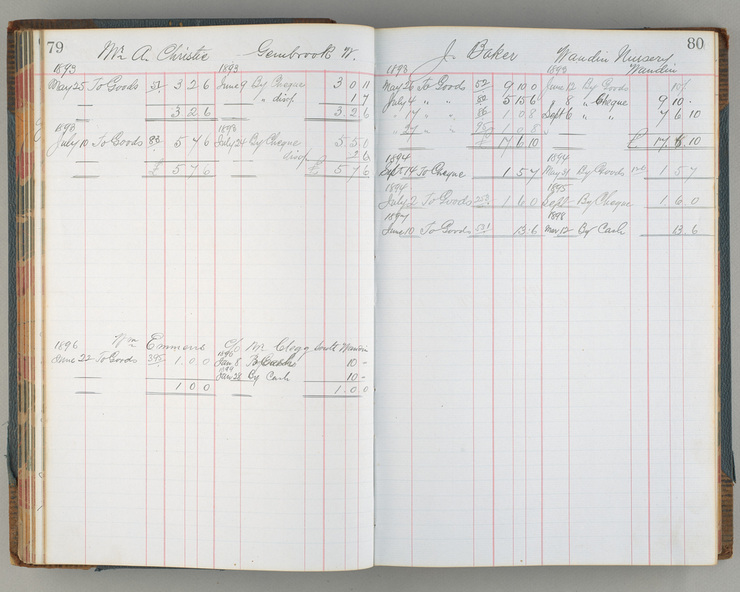 79
Mr A. Christie Gembrook W.
1893 1893
May 25 To Goods 51 3 2 6 June 9 By Cheque 3 0 11
" disct 1 7
3 2 6 3 2 6
1893 1893
July 10 To Goods 83 5 4 6 July 24 By Cheque 5 5 0
disct 2 6
£ 5 7 6 £ 5 7 6
Wm Emmens C/o Mr Clegg South Wandin
1896 1896
June 22 To Goods 395 1 0 0 Jan 8 By 10 -
Jan 28 By Cash 10 -
1 0 0 1 0 0
80
J. Baker Wandin Nursery
Wandin
1893 1893
May 26 To Goods 52 9 0 0 June 12 By Goods
July 4 " " 82 5 15 6 " 8 " Cheque 9 10 -
" 17 " " 86 1 0 8 Sept 6 " " 7 6 10
" 27 " "
£ 17 6 10 £ 17 6 10
1894 1894
Sept 14 To Cheque 1 5 7 May 31 By Goods 1 5 7
1894 1895
July 2 To Goods 1 6 0 Sept By Cheque 1 6 0
1897 1898
June 10 To Goods 13 6 Mar 12 By Cash 13 6